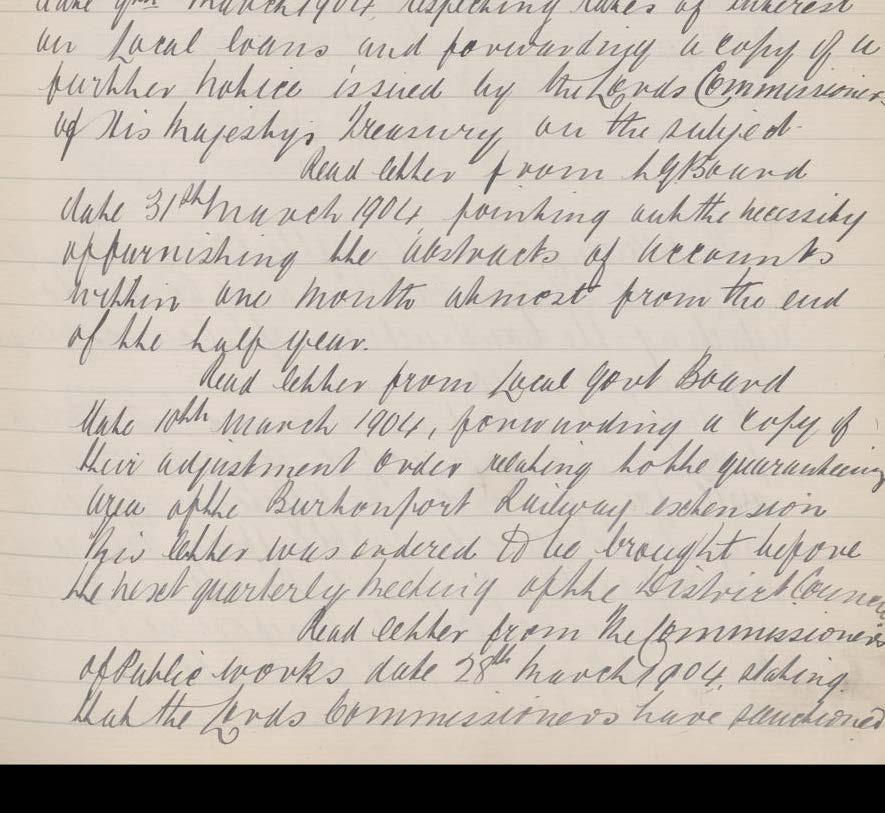 date 9th March 1904, respecting rates of interest
on Local loans and forwarding a copy of a
further notice issued by the Lords Commissioners
of His Majesty's Treasury on the subject.
Read letter from L G Board
date 31st March 1904, pointing out the necessity
of furnishing the abstracts of accounts
within one month at most from the end
of the half year.
Read letter from Local Govt Board
date 10th March 1904, forwarding a copy of
their adjustment order relating to the guaranteeing
area of the Burtonport Railway extension
This letter was ordered to be brought before
the next quarterly meeting of the District Council
Read letter from The Commissioners
of Public works date 28th March 1904, stating
that the Lords Commissioners have sanctioned